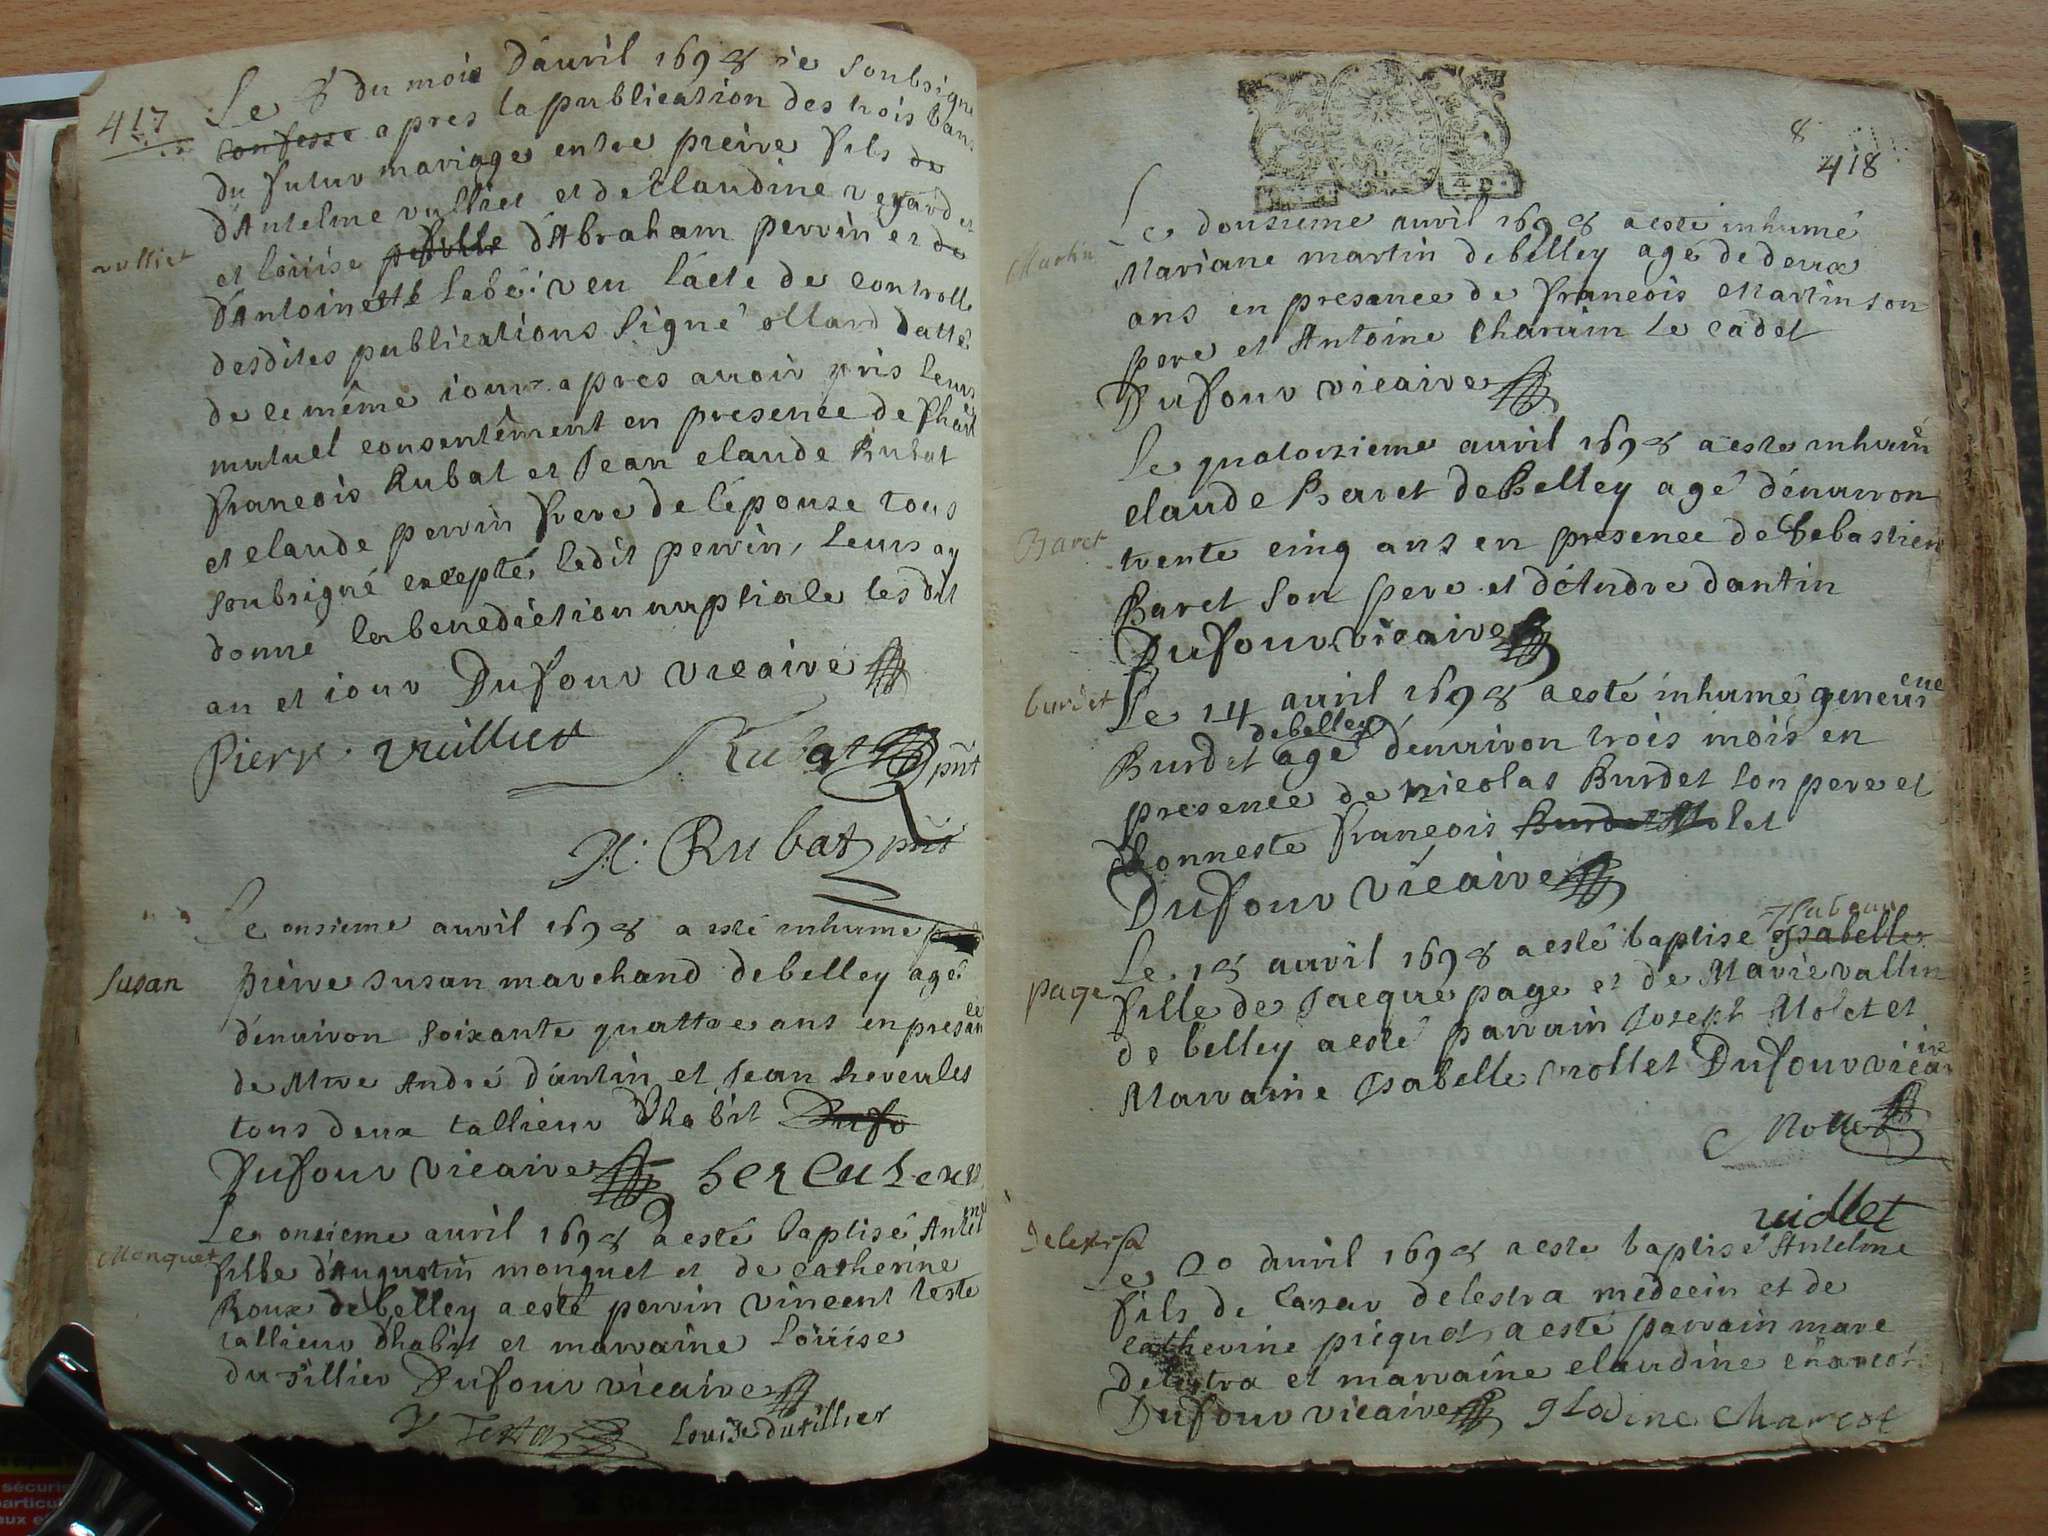 417
Le 8 du mois d'auril 1698 ie soubsigne
confesse apres la publication des trois bans
du futur mariage entre pieire fils de
d'Antelme vulliet et de Claudine regard et
vulliet
et loüise pefille d'Abraham perrin et de
d'Antoinette veu l'acte de controlle
desdites publications signé ollard datté
de ce même iour apres auoir pris leurs
mutuel consentêment en presence de
francois Rubat et Jean claude Rubat
et claude perrin frere de l'épouse tous
soubsigné excepté ledit perrin, leurs ay
donné la benediction nuptiale les dit
an et iour Dufour vicaire
Pierre vuilliet Rubat pnt
Rubat pnt
Le onsieme auril 1698 a esté inhume
susan
pieire susan marchand debelley agé
d'enuiron soixante quattre ans en presance
de Mre André d'antin et Jean hercules
tous deux tallieur d'habit Dufo
Dufour vicaire herculeux
Le onsieme auril 1698 a esté baptisé Antelme
Monquet
fille d'Augustin monquet et de catherine
Roux de belley a esté perrin vincent teste
tallieur d'habit et marraine loüise
dutillier Dufour vicaire
Testa Louise dutillier
8
418
Le dousieme auril 1698 a esté inhumé
Martin
Mariane martin debelley agé de deux
ans en presance de francois Martin son
pere et Antoine le cadet
Dufour vicaire
Le quatorzieme auril 1698 a este inhumé
claude Baret deBelley agé d'enuiron
Baret
trente cinq ans en presence de Sebastien
Baret son pere et d'Andre dantin
Dufour vicaire
burdet
Le 14 auril 1698 a esté inhumé geneuieue
debelley
Burdet agé d'enuiron trois mois en
presence de nicolas Burdet son pere et
honneste francois Burdet Molet
Dufour vicaire
Le 18 auril 1698 a esté baptise Isabelle
page
fille de Jacque page et de Marie vallin
de belley a esté parrain Joseph Molet et
Marraine Isabelle vrollet Dufour vicaire
Molle
viollet
Delestra
Le 20 auril 1698 a este baptisé Antelme
fils de Cazar delestra medecin et de
catherine picquet, a esté parrain marc
Delestra et marraine claudine charcot
Dufour vicaire glodine Charcot